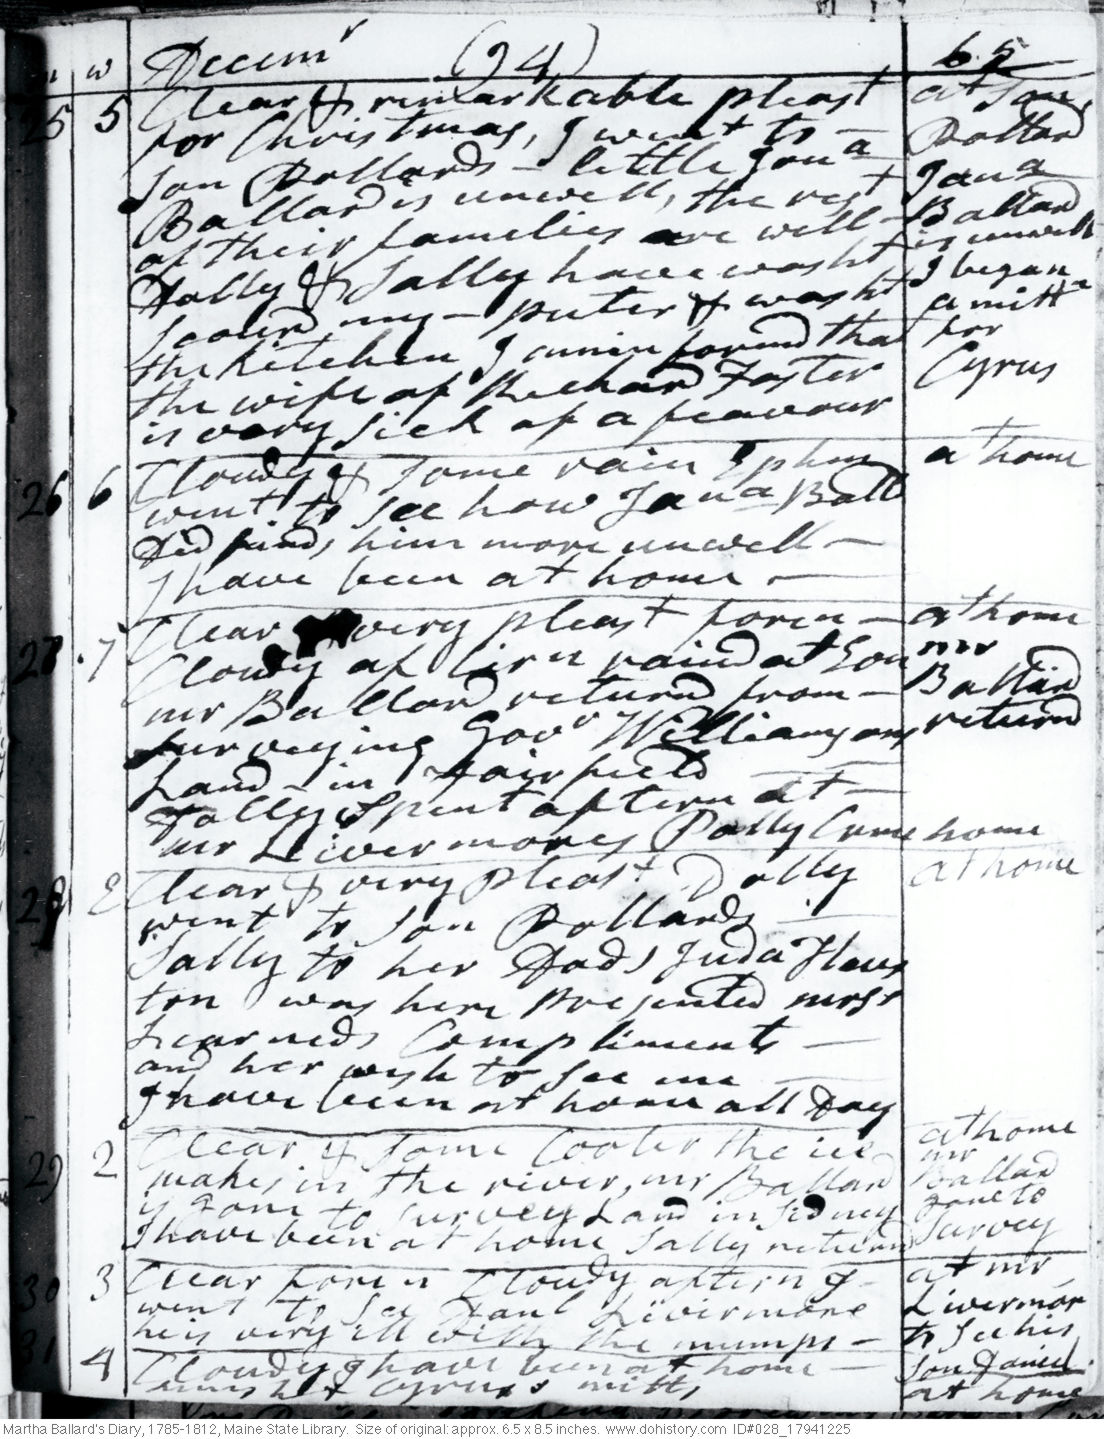 m w Decemr (94) 65
25 5 Clear & remarkable pleast at Sons
for Christmas, I went to — Pollard
Son Pollards — little Jona Jona
Ballard is unwell, the rest Ballard
of their families are well — is unwell
Dolly & Sally have washt I began
Scourd my — puter & washt a mittn
the kitchen I am informd that for
the wife of Rechard Foster Cyrus
is very Sick of a feavour
26 6 Cloudy & some rain Ephm at home
went to see how Jona Ball
Did find, him more unwell —
I have been at home —
27 7 Clear very pleast foren — at home
Cloudy aftern raind at Evn mr
mr Ballard returnd from — Ballard
surveying Govr Williamsons returnd
Land — in Fairfield
Dolly Spent aftern at —
mr Livermores Polly Came home
28 E Clear & very pleast Dolly at home
went to Son Pollards —
Sally to her Dads Juda
ton was here Presented mrss
Learneds Compliments —
and her wish to see me —
I have been at home all Day
29 2 Clear & some Cooler the ice at home
makes in the river, mr Ballard mr Ballard
is gone to survey Land in Sidney gone to
I have been at home Sally returnd survey
30 3 Clear foren Cloudy aftern I — at mr
went to see Danl Livermore Livermor
he is very ill with the mumps — to see his
31 4 Cloudy I have been at home — son Daniel
finisht Cyruss mitts at home
Martha Ballard's Diary, 1785-1812, Maine State Library. Size of original: approx. 6.5 x 8.5 inches. www.dohistory.com ID#028_17941225